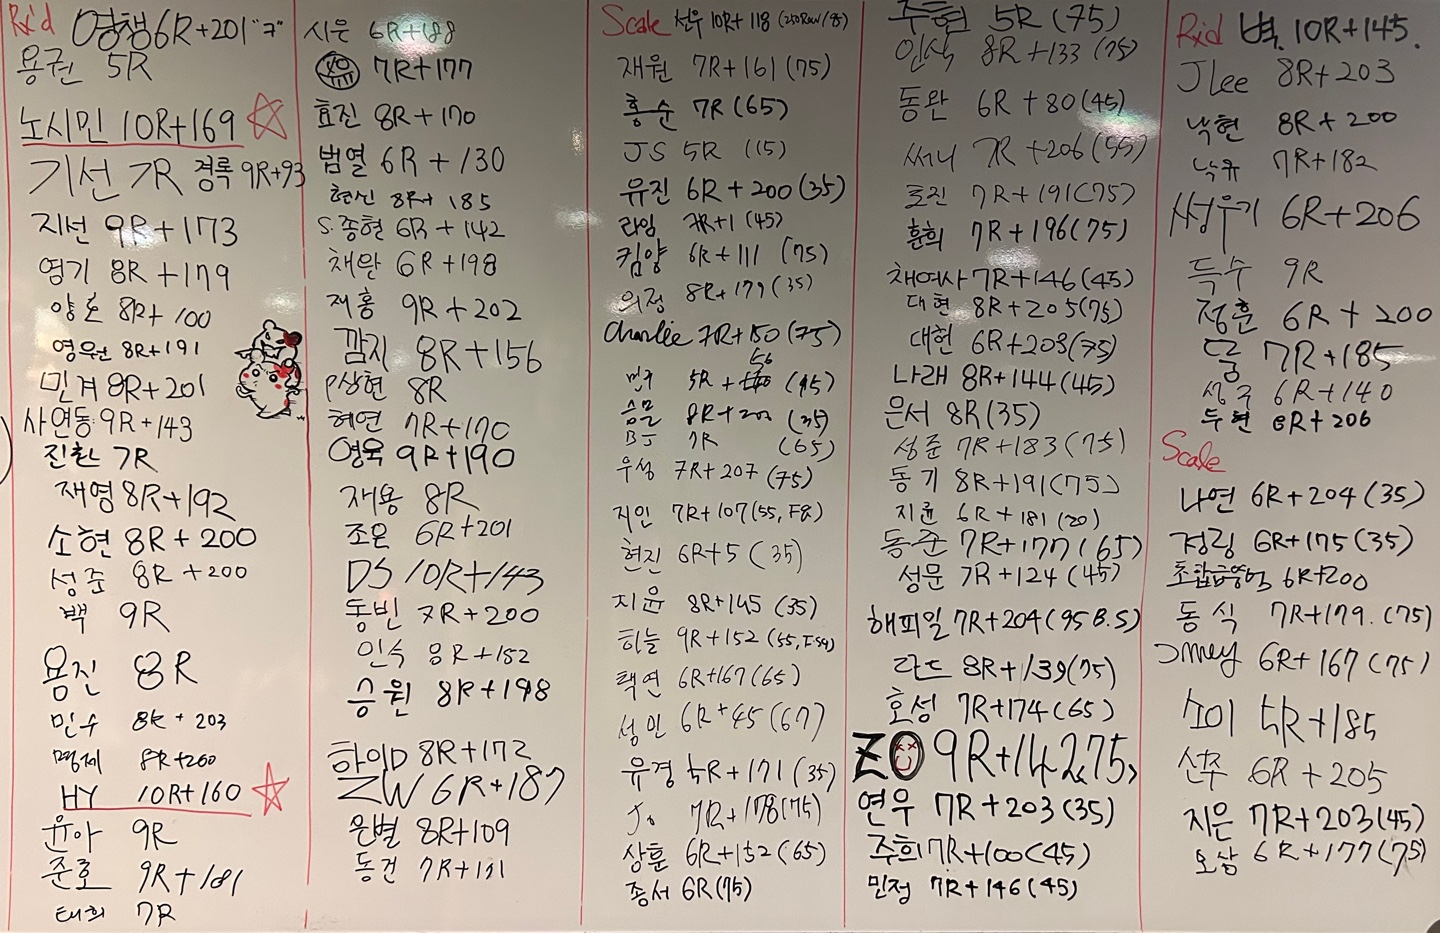 Rx'd 영챔 6R+201 "7"
용권 5R
노시민 10R+169
기선 7R 경록 9R+93
지선 9R+173
영기 8R+179
양호 8R+100
영원 8R+191
민겨 8R+201
사연동 9R+143
진환 7R
재영 8R+192
소현 8R+200
성준 8R+200
백 9R
용진 8R
민수 8R+203
명제 8R+200
HY 10R+160
윤아 9R
준호 9R+181
태희 7R
시은 6R+188
7R+177
효진 8R+170
범열 6R+130
현신 8R+185
S.종현 6R+142
채완 6R+198
재홍 9R+202
깜지 8R+156
P상현 8R
혜연 7R+170
영욱 9R+190
재용 8R
조은 6R+201
DS 10R+143
동빈 7R+200
인숙 8R+152
승원 8R+198
8R+172
ZW 6R+187
은별 8R+109
동건 7R+131
Scale 선우 10R+118
재원 7R+161 (75)
홍순 7R (65)
JS 5R (15)
유진 6R+200 (35)
라임 7R+1 (45)
킴양 6R+111 (75)
의정 8R+179 (35)
Charlie 7R+150 (75)
민구 5R+56 (45)
승물 8R+200 (35)
BJ 7R (65)
우성 7R+207 (75)
지인 7R+107 (55, F8)
현진 6R+5 (35)
지윤 8R+145 (35)
하늘 9R+152
택연 6R+167 (65)
성민 6R+45 (67)
유경 5R+171 (35)
Jo 7R+178 (75)
상훈 6R+152 (65)
종서 6R (75)
주현 5R (75)
인식 8R+133 (75)
동완 6R+80 (45)
써니 7R+206 (55)
효진 7R+191 (75)
훈희 7R+196 (75)
채여사 7R+146 (45)
대현 8R+205 (75)
대헌 6R+203 (75)
나래 8R+144 (45)
은서 8R (35)
성준 7R+183 (75)
동기 8R+191 (75)
지윤 6R+181 (20)
동준 7R+177 (65)
성문 7R+124 (45)
해피일 7R+204 (95 B.S)
다드 8R+139 (75)
호성 7R+174 (65)
ZO 9R+142,75,
연우 7R+203 (35)
주희 7R+100 (45)
민정 7R+146 (45)
Rxd 벽. 10R+145.
JLee 8R+203
낙현 8R+200
낙규 7R+182
썽우기 6R+206
득수 9R
정훈 6R+200
둥 7R+185
성주 6R+140
두현 6R+206
Scale
나연 6R+204 (35)
정림 6R+175 (35)
6R+200
동식 7R+179. (75)
Jmey 6R+167 (75)
소이 5R+185
선주 6R+205
지은 7R+203 (45)
오삼 6R+177 (75)